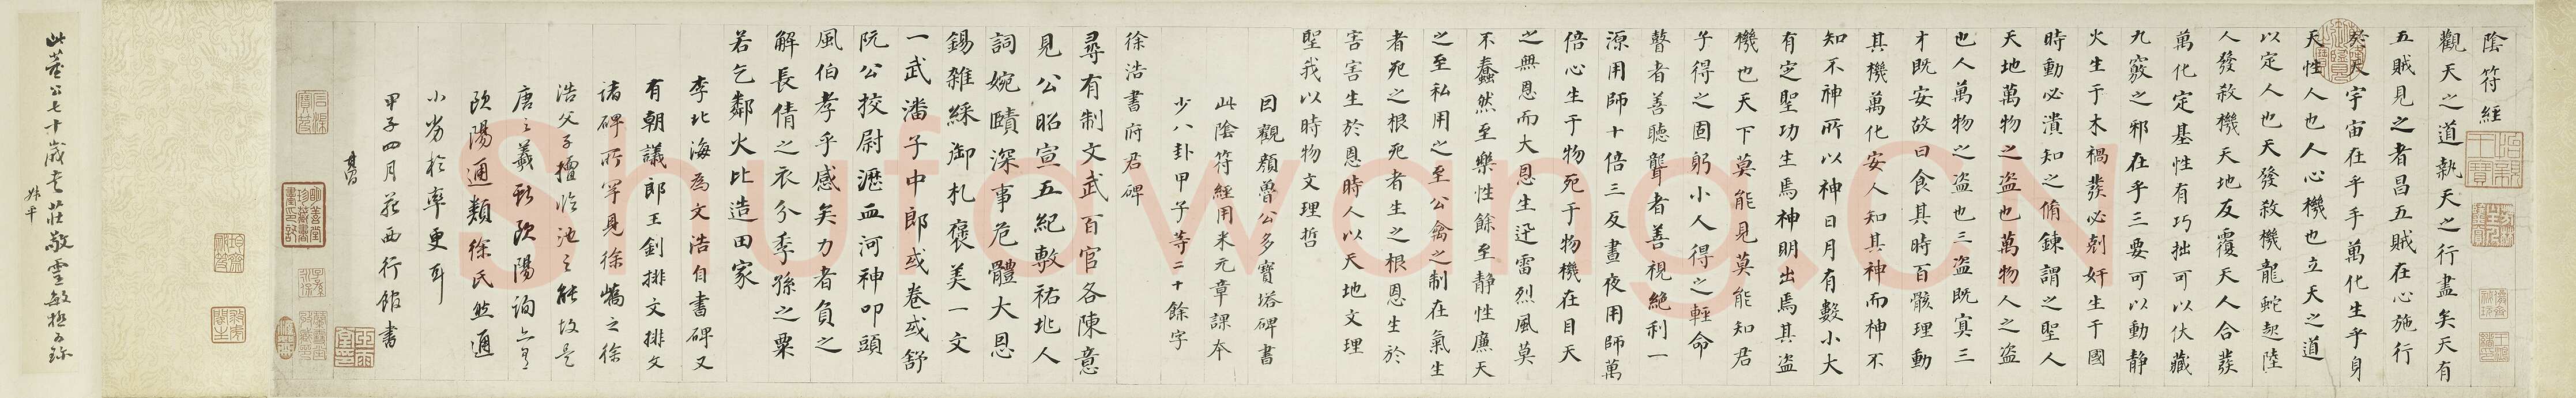 陰符經
觀天之道執天之行盡矣天有
五賊見之者昌五賊在心施行
於天宇宙在乎手萬化生乎身
天性人也人心機也立天之道
以定人也天發殺機龍蛇起陸
人發殺機天地反覆天人合發
萬化定基性有巧拙可以伏藏
九竅之邪在乎三要可以動静
火生于木禍發必剋奸生于國
時動必潰知之脩錬謂之聖人
天地萬物之盜也萬物人之盜
也人萬物之盜也三盜既冥三
才既安故曰食其時百骸理動
其機萬化安人知其神而神不
知不神所以神日月有數小大
有定聖功生焉神明出焉其盜
機也天下莫能見莫能知君
子得之固躬小人得之輕命
瞽者善聽聾者善視絶利一
源用師十倍三反晝夜用師萬
倍心生于物死于物機在目天
之無恩而大恩生迅雷烈風莫
不蠢然至樂性餘至静性廉天
之至私用之至公禽之制在氣生
者死之根死者生之根恩生於
害害生於恩時人以天地文理
聖我以時物文理哲
因觀顏魯公多寶塔碑書
此陰符經用米元章課本
少八卦甲子等二十餘字
徐浩書府君碑
尋有制文武百官各陳意
見公昭宣五紀敷祐兆人
詞婉賾深事危體大恩
錫雜綵御札褒美一文
一武潘子中郎或卷或舒
阮公挍尉瀝血河神叩頭
風伯孝乎感矣力者負之
解長倩之衣分季孫之粟
若乞鄰火比造田家
李北海為文浩自書碑又
有朝議郎王釗排文排文
諸碑所罕見徐嶠之徐
浩父子擅臨池之能故是
唐之羲獻歐陽詢亦有
歐陽通類徐氏然通
小劣於率更耳
甲子四月苑西行館書
其昌
此董公七十歲書莊敬靈敏極可珍
Shufawang.CN